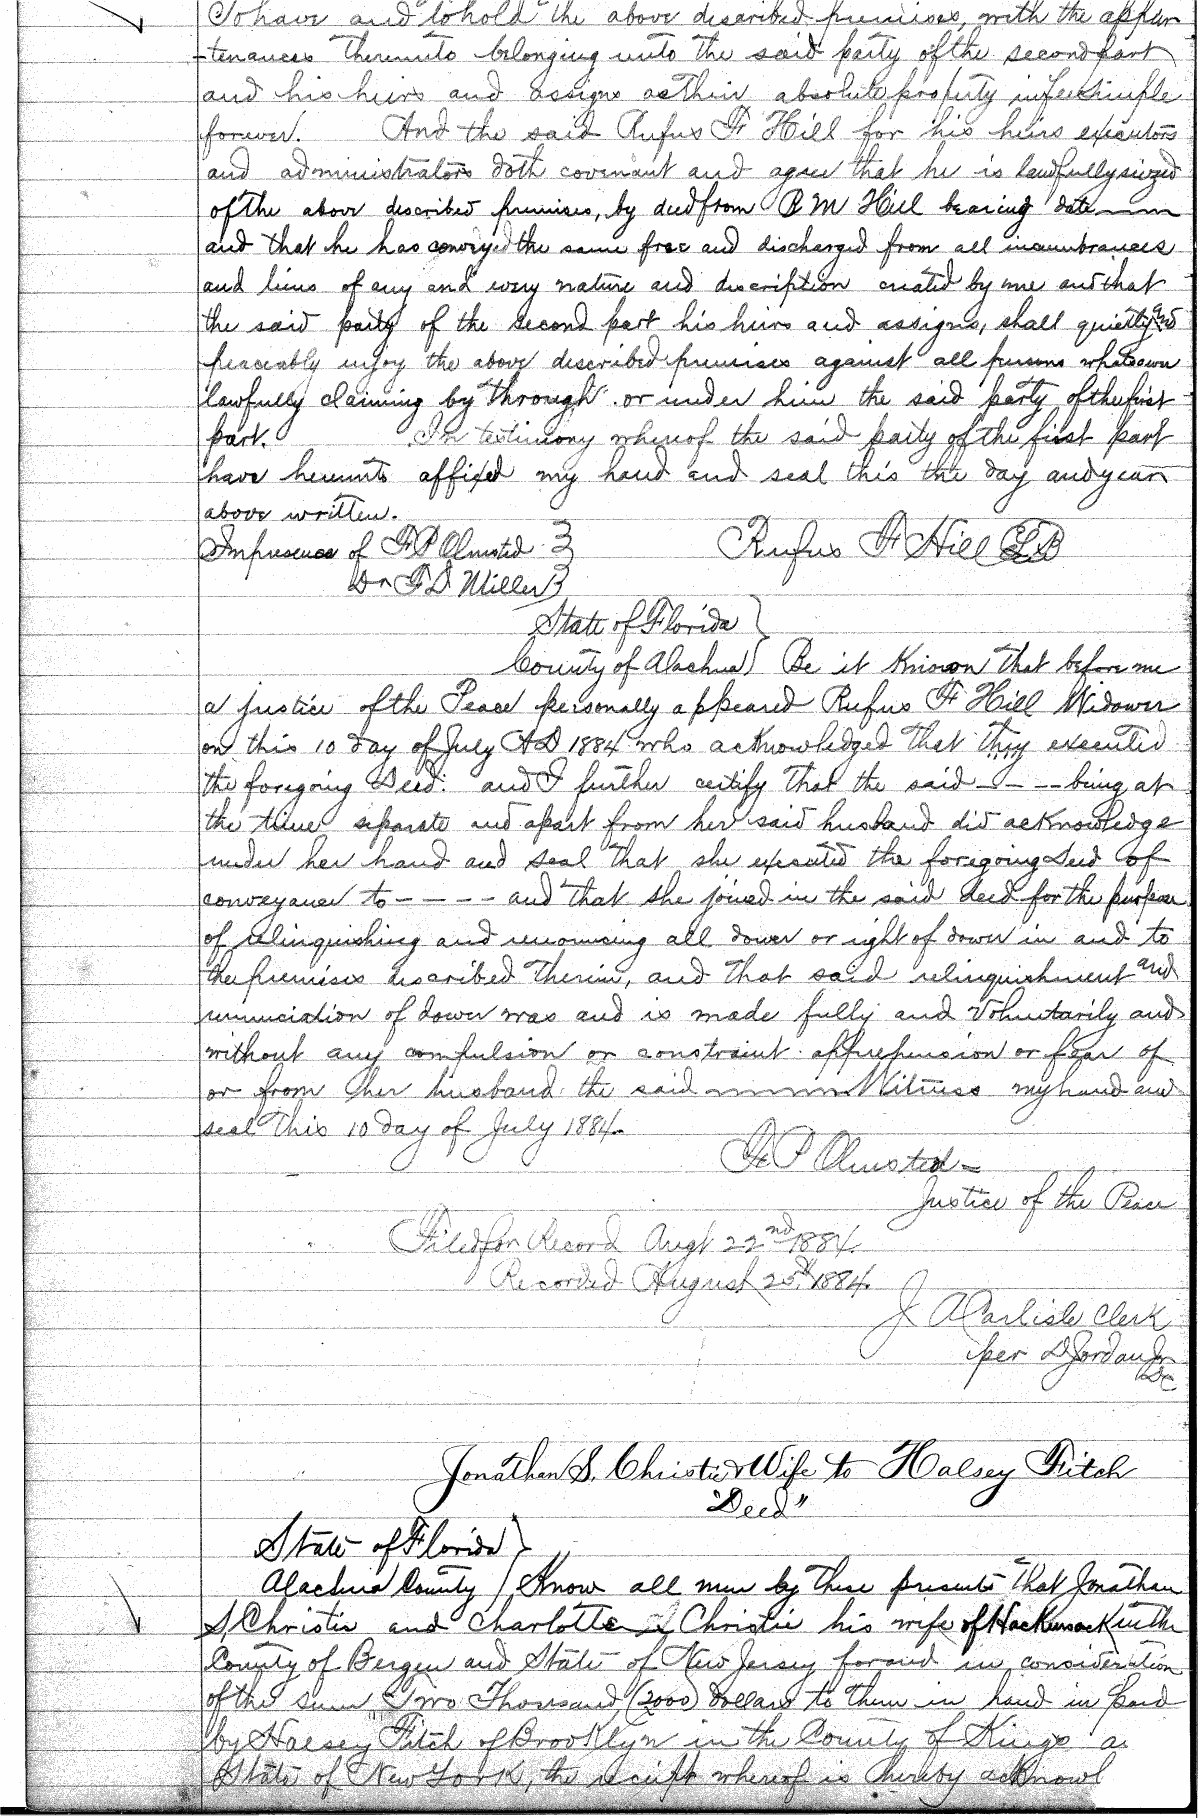 To have and to hold the above described premises, with the appur
tenances thereunto belonging unto the said party of the second part
and his heirs and assigns as their absolute property in fee simple
forever. And the said Rufus F Hill for his heirs executors
and administrators doth covenant and agree that he is lawfully siezed
of the above described premises, by deed from R M Hill bearing date
and that he has conveyed the same free and discharged from all incumbrances
and liens of any and every nature and discription created by me and that
the said party of the second part his heirs and assigns, shall quietly and
peaceably enjoy the above described premises against all persons whatsoever
lawfully claiming by through or under him the said party of the first
part. In testimony whereof the said party of the first part
have hereunto affixed my hand and seal this the day and year
above written.
In presence of F P Olmsted Rufus F Hill
Dr F D Miller
State of Florida
County of Alachua Be it Known that before me
a justice of the Peace personally appeared Rufus F Hill Widower
on this 10 day of July AD 1884 who acknowledged that they executed
the foregoing Deed: and I further certify that the said - - - being at
the time separate and apart from her said husband did acknowledge
under her hand and seal that she executed the foregoing deed of
conveyance to - - - - and that she joined in the said deed for the purpose
of relinquishing and renouncing all dower or right of dower in and to
the premises described therein, and that said relinquishment and
renunciation of dower was and is made fully and voluntarily and
without any compulsion or constraint apprehension or fear of
or from her husband the said Witness my hand and
seal this 10 day of July 1884.
F P Olmsted
Justice of the Peace
Filed for Record Augt 22nd 1884.
Recorded August 25th 1884.
J A Carlisle Clerk
per D Jordan Jr
DC
Jonathan S. Christie & Wife to Halsey Fitch
"Deed"
State of Florida
Alachua County Know all men by these presents that Jonathan
S, Christie and Charlotte Christie his wife of Hackensack in the
County of Bergen and State of New Jersey for and in consideration
of the sum Two Thousand (2000) dollars to them in hand in paid
by Halsey Fitch of Brooklyn in the County of Kings a
State of New York, the receipt whereof is hereby acknowl